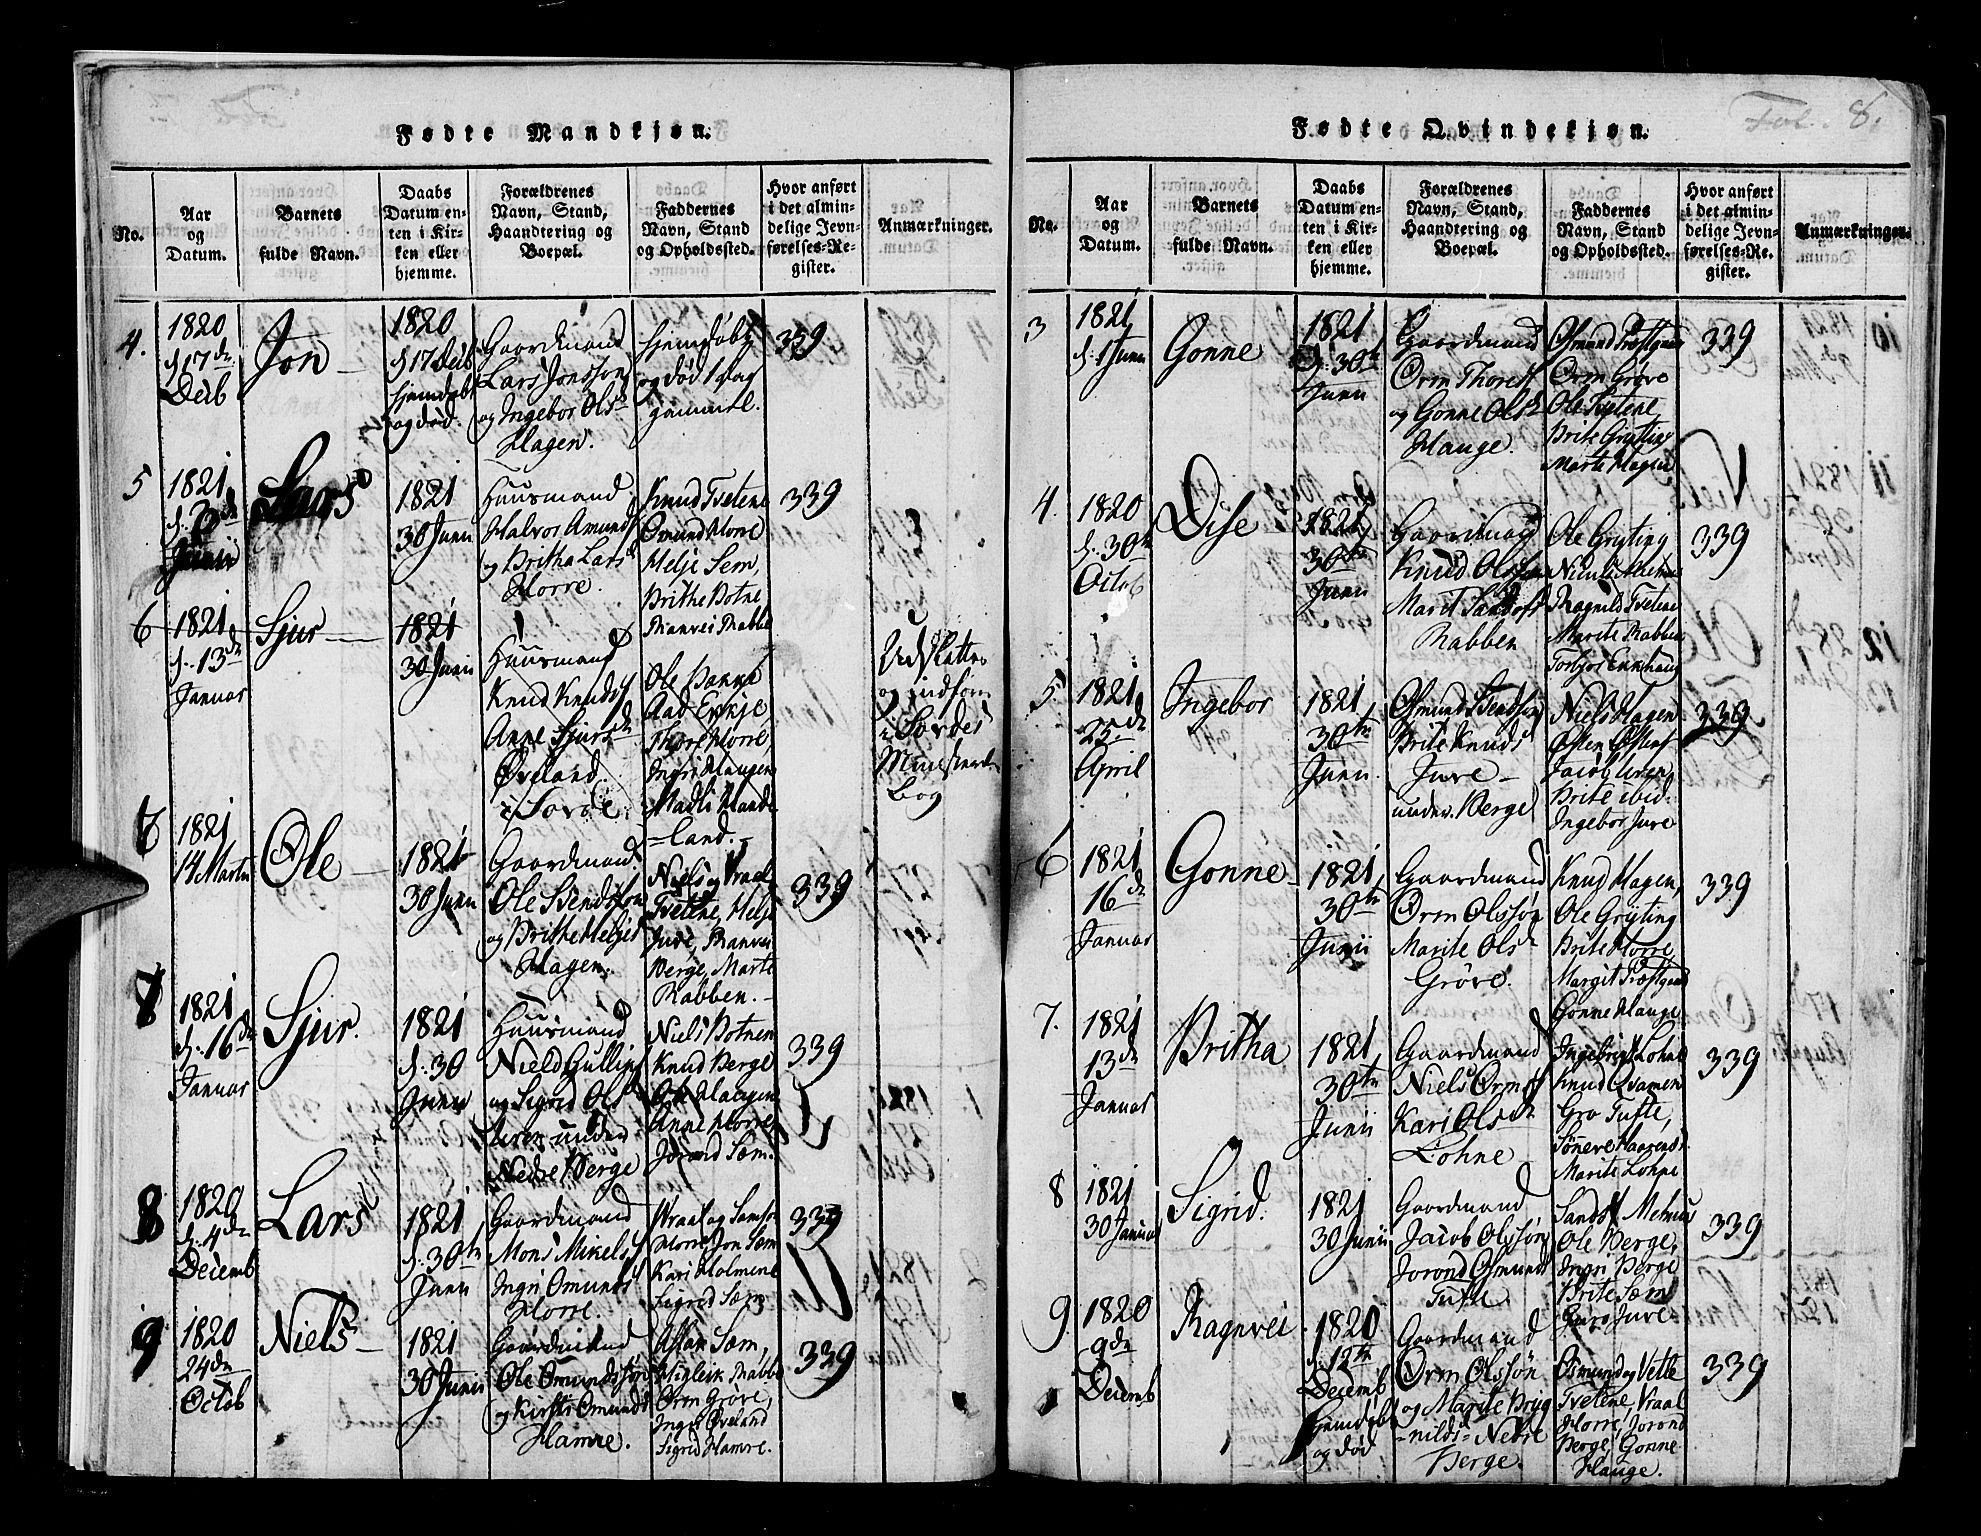 Fødte Mandkjøn.
No.
Aar
og
Datum.
Barnets
fulde Navn.
Daabs
Datum en-
ten i Kir-
ken eller
hjemme.
Forældrenes
Navn, Stand,
Haandtering og
Boepæl.
Faddernes
Navn, Stand
og Opholdssted.
Hvor anført
i det almin-
delige Jevn-
førelses-Re-
gister.
Anmærkninger.
4.
1820
d. 17de
Decb
Jon
1820
d 17 Decb
hjemdøbt
og død.
Gaardmand
Lars Jonsson
og Ingebor Olsd
Hagen.
hjemdøbt
og død 1 dag
gammel.
339
5
1821
Junii
Lars
1821
30 Junii
Huusmand
Halvor Amunds
og Britha Larsd
Horre.
Knud Tvetene
Omund Horre
Helje Sem,
Brithe Botne
Ranvei Rabbe
339
6
1821
d. 13de
Januar
Sjur
1821
30 Junii
Huusmand
Knud Knuds
Anne Sjursd
Øveland
i Sovde.
Ole
Aad
Thore Horre,
Ingri Haugen
Madli Hande
land.
Udslattes
og indføres
i Sovdes
Ministerial
bog
7
1821
14 Martii
Ole
1821
30 Junii
Gaardmand
Ole Svendsson
og Brithe Heljesd
Hagen.
Niels og Vraal
Tvetene, Helje
Jure, Ranvei
Berge, Marte
Rabben.
339
1821
d. 16de
Januar
Sjur.
1821
d. 30
Junii
Huusmand
Niels Gullies
og Sigrid Olsd
Uren under
Nedre Berge
Niels Botnen
Knud Berge
Ole Haugen
Anne Horre,
Jorond Sæm.
339
8
1820
d. 4de
Decemb
Lars
1821
d. 30te
Junii
Gaardmand
Mons Mikels
Ingri Omunds
Horre
Vraal og Samson
Horre, Jon Sæm
Kari Holmene
Sigrid Sæm
339
9
1820
24de
Octob
Niels
1821
30 Junii
Gaardmand
Ole Omundsson
og Kirsti Omunds
Hamre.
Aslak Sæm,
Rabbe
Orm Grøve,
Ingri Øveland
Sigrid Hamre.
339
Fødte Qvindekjøn.
Fol. 8.
No.
Aar
og
Datum.
Barnets
fulde Navn.
Daabs
Datum en-
ten i Kir-
ken eller
hjemme.
Forældrenes
Navn, Stand,
Haandtering og
Boepæl.
Faddernes
Navn, Stand
og Opholdssted.
Hvor anført
i det almin-
delige Jevn-
førelses-Re-
gister.
Anmærkninger.
3
1821
d. 1 Junii
Gonne
1821
d. 30te
Junii
Gaardmand
Orm Thores
og Gonne Olsd
Hauge.
Osmund Prestgaar
Orm Grøve
Ole Tvetene,
Brite Gryting
Marte Hagen
339
4.
1820
d. 30te
Octob
Dise
1821
30te
Junii
Gaardmand
Knud Olsson
Marit
Rabben
Ole Gryting
Ragnild Tvetene
Marite Rabben
339
5
1821
25de
April
Ingebor
1821
30te
Junii
Osmund Svendson
Brite Knudsd
Jure
under Berge
Niels Hagen
Østen
Jacob Uren
Brite ibid.
Ingebor Jure
339
6
1821
16de
Januar
Gonne
1821
30te
Junii
Gaardmand
Orm Olssøn
Marite Olsd
Grøve.
Knud Hagen,
Ole Gryting
Brite Horre,
Margit Prestgaard
Gonne Hauge
339
7.
1821
13de
Januar
Britha
1821
30te
Junii
Gaardmand
Niels Orms
Kari Olsd
Lohne
Ingebrigt Lohne
Knud Qvamen
Gro Tufte,
Søneve
Marite Lohne
339
8
1821
30 Januar
Sigrid.
1821
30 Junii
Gaardmand
Jacob Olssøn
Jorond Osmunds
Tufte.
Ole Berge,
Ingri Berge
Brite Sæm
Guro Jure
339
9.
1820
9de
Decemb
Ragnvei
1820
d. 12te
Decemb
hjemdøbt
og død
Gaardmand
Orm Olssøn
og Marite Bryg
nilds Nedre
Berge.
Osmund og Vetle
Tvetene, Vraal
Horre, Jorond
Berge, Gonne
Hauge.
339